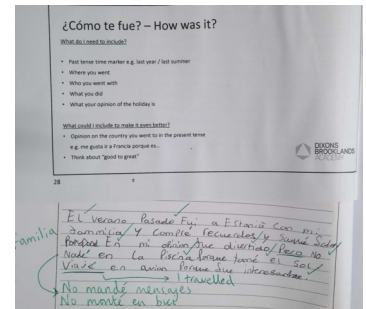 ¿Cómo te fue? – How was it?
What do I need to include?
• Past tense time marker e.g. last year / last summer
• Where you went
• Who you went with
• What you did
• What your opinion of the holiday is
What could I include to make it even better?
• Opinion on the country you went to in the present tense
e.g. me gusta ir a Francia porque es...
• Think about "good to great"
DIXONS
BROOKLANDS
ACADEMY
28
El verano Pasado Fui a con mi
familia
y compré recuerdos y
En mi opinión fue divertido Pero No
Nadé en la Piscina Porque tomé el Sol
Viajé en avion Porque fue interesante.
I travelled
No mandé mensajes
No monté en bici